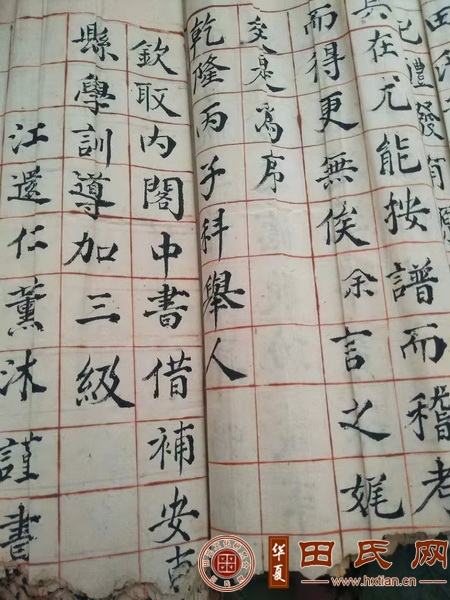 禮發有
具在尤能按譜而稽考
而得更無俟余言之娓
爰是為序
乾隆丙子科舉人
欽取內閣中書借補安
縣學訓導加三級
江還仁薰沐謹書
华夏
田氏网
www.hxtian.cn